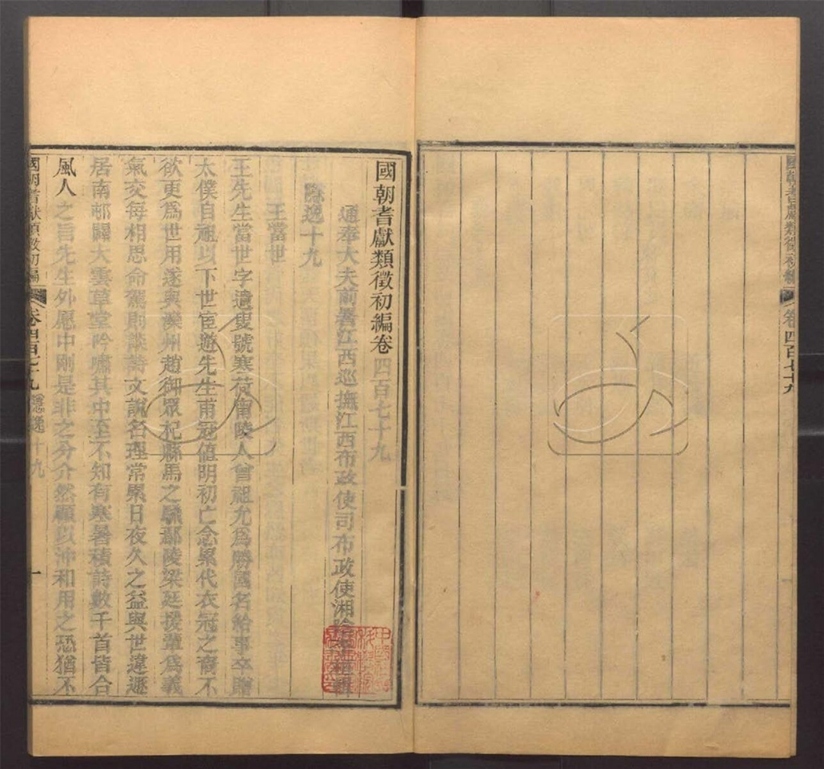 國朝耆獻類徵初編卷四百七十九
國朝耆獻類徵初編卷四百七十九
通奉大夫前署江西巡撫江西布政使司布政使湘陰
隱逸十九
王當世
王先生當世字遺叟號寒荷鄢陵人曾祖尤爲勝國名給事卒贈
太僕自祖以下世宦遊先生甫冠値明初亡念累代衣冠之裔不
欲更爲世用遂與溧州趙御眾杞縣馬之鄢陵梁廷援輩爲義
氣交每相思命駕則談詩文說名理常累日夜久之益與世違遯
居南邨闢大雲草堂吟嘯其中至不知有寒暑積詩數千首皆合
風人之旨先生外愿中剛是非之分介然顧以沖和用之恐猶不
國朝耆獻類徵初編 卷四百七十九 隱逸十九 一